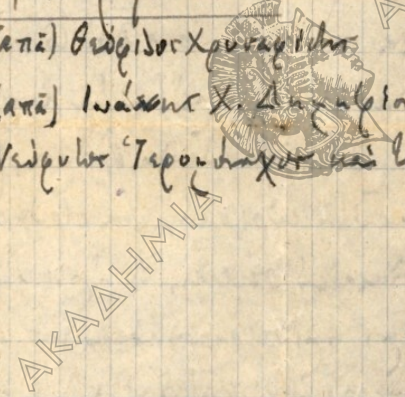 απᾶ) Θεόφιλος Χρυσαφίδης
απᾶ) Ἰωάννης Χ. Δημητρίο
Νεόφυτος Ἱερομόναχος καὶ
ΑΚΑΔΗΜΙΑ